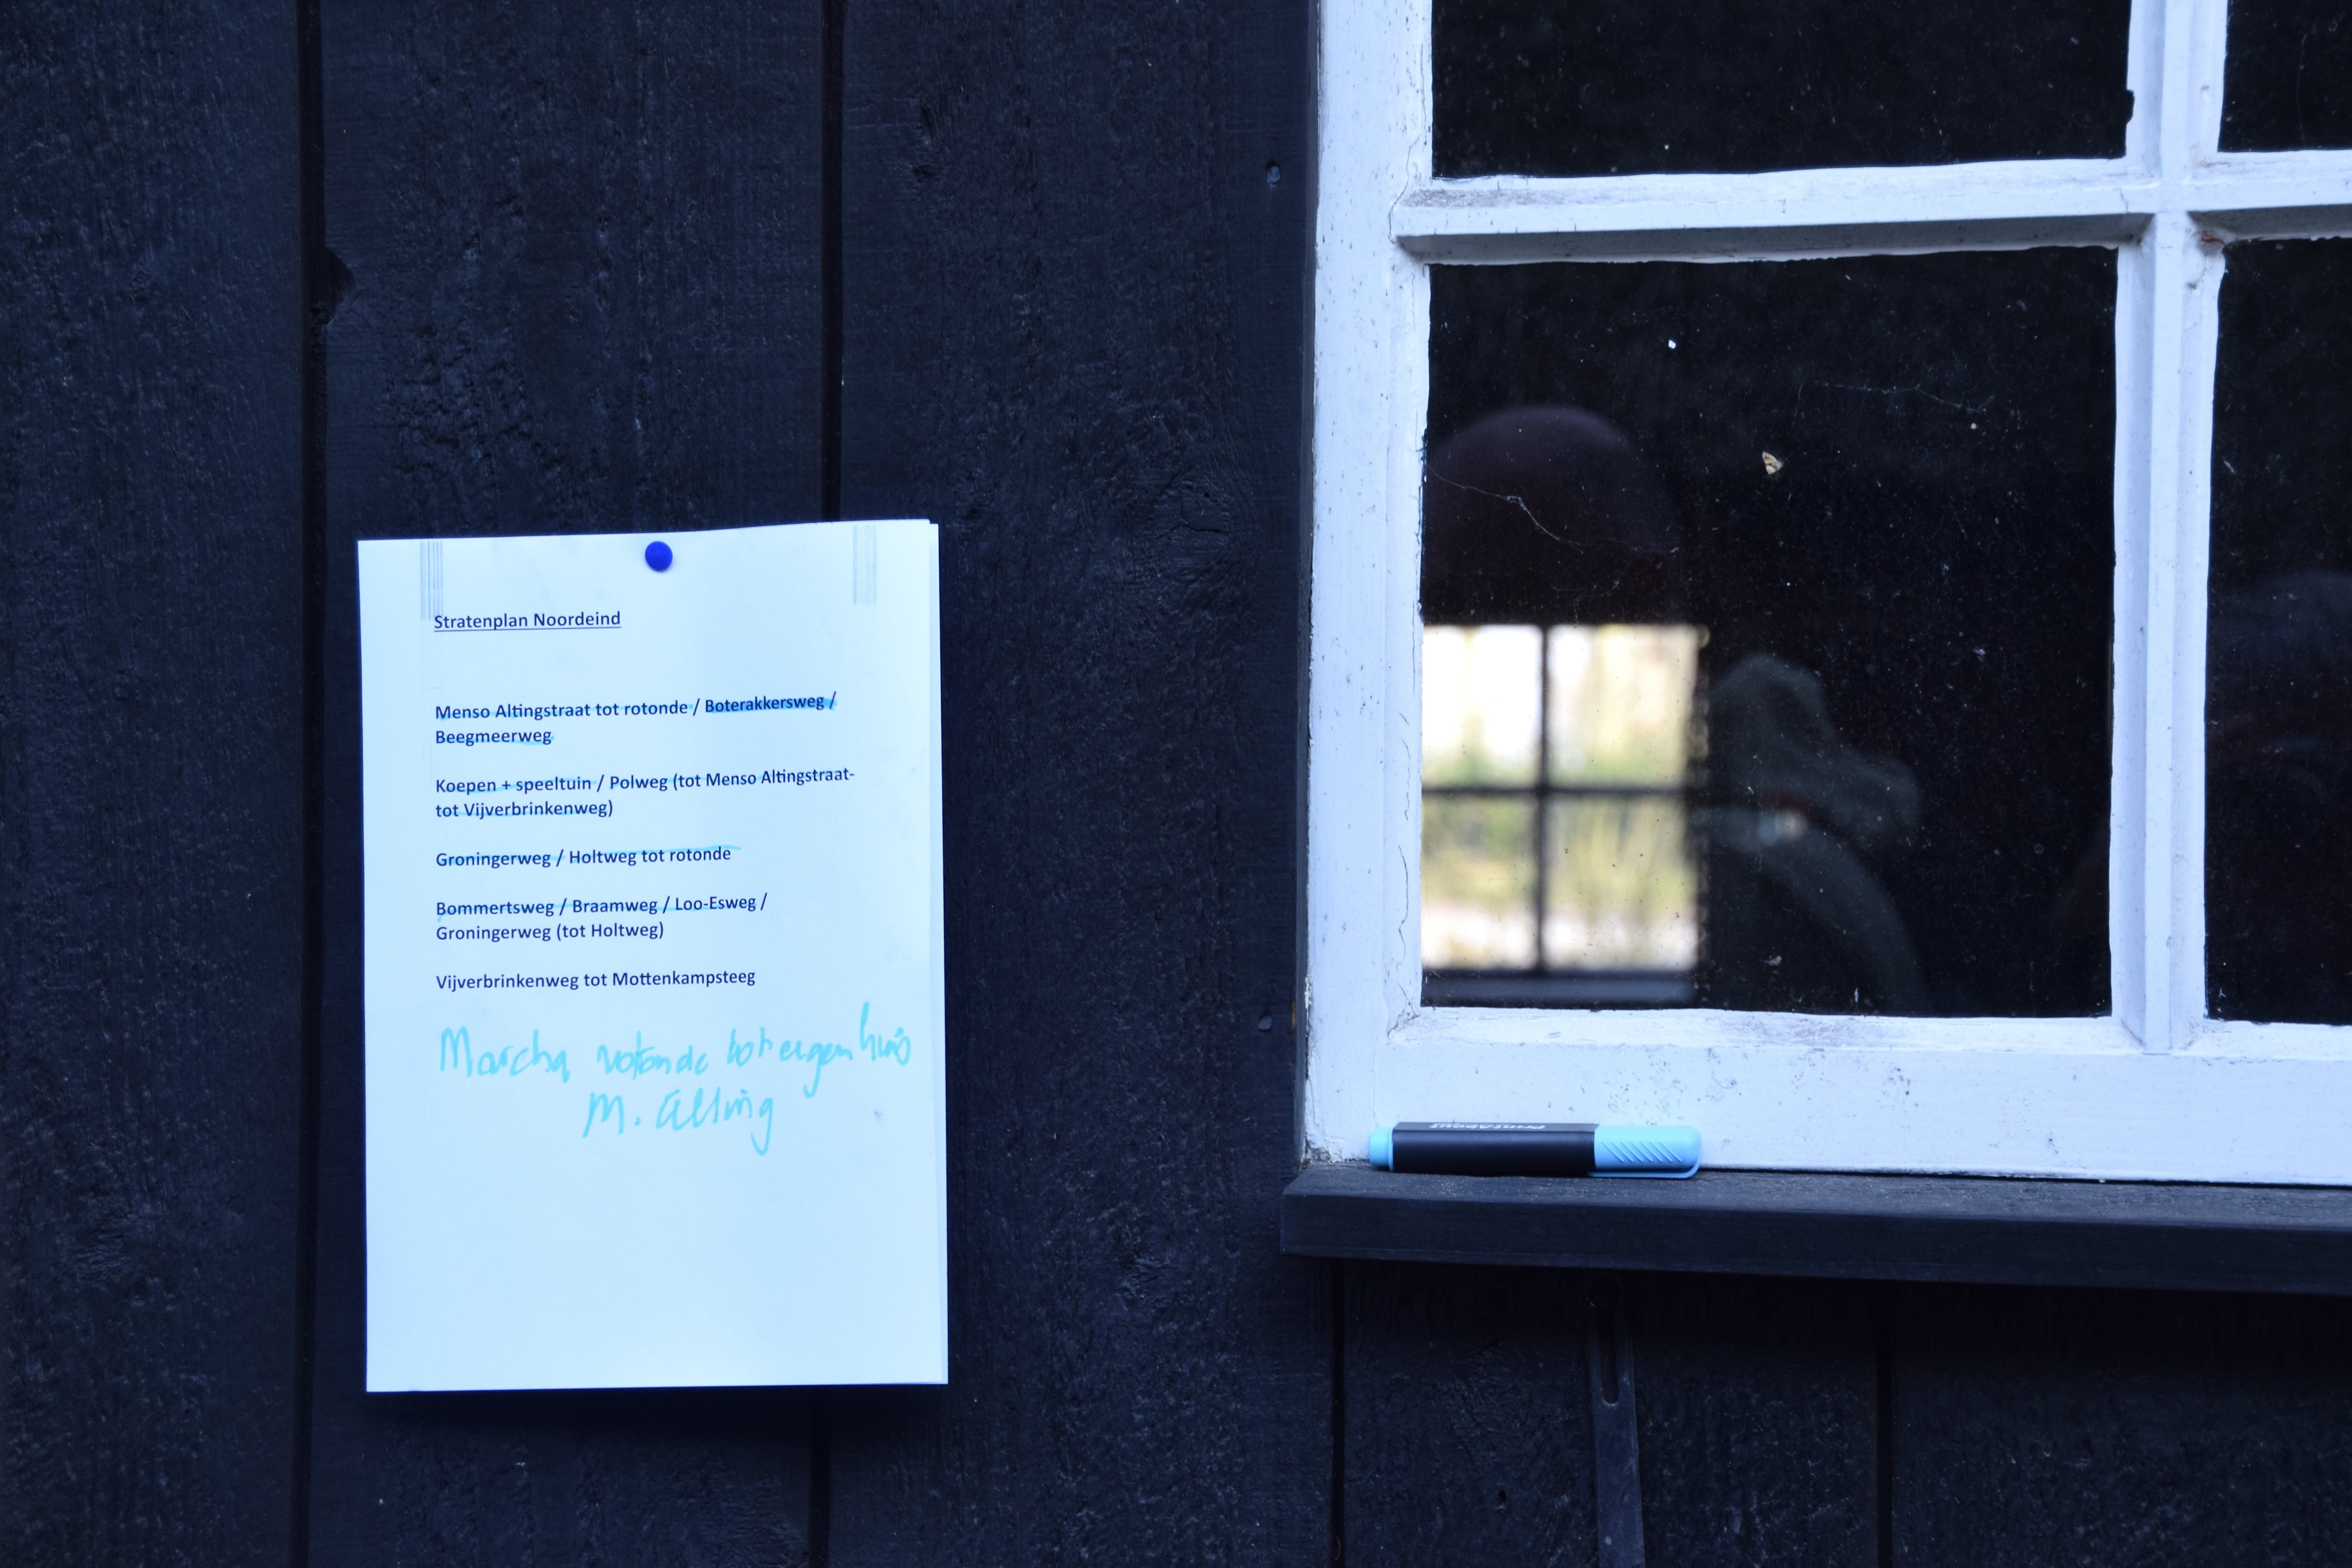 Stratenplan Noordeind
Menso Altingstraat tot rotonde / Boterakkersweg /
Beegmeerweg
Koepen + speeltuin / Polweg (tot Menso Altingstraat-
tot Vijverbrinkenweg)
Groningerweg / Holtweg tot rotonde
Bommertsweg / Braamweg / Loo-Esweg /
Groningerweg (tot Holtweg)
Vijverbrinkenweg tot Mottenkampsteeg
rotonde tot eigen huis
M.